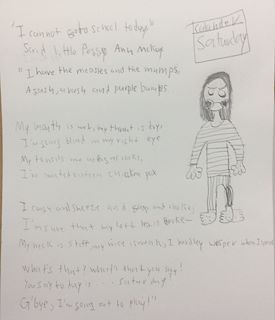 "I cannot go to school today"
Said little Peggy Ann McKay
"I have the measles and the mumps,
A gash, a rash and purple bumps.
My mouth is wet, my throat is dry,
I'm going blind in my right eye
My tonsils are as big as rocks,
I've counted sixteen chicken pox
I cough and sneeze and gasp and choke,
I'm sure that my left leg is broke—
My neck is stiff, my voice is weak, I hardly whisper when I speak
What's that? What's that you say?
You say today is ... Saturday
G'bye, I'm going out to play!"
calendar
Saturday